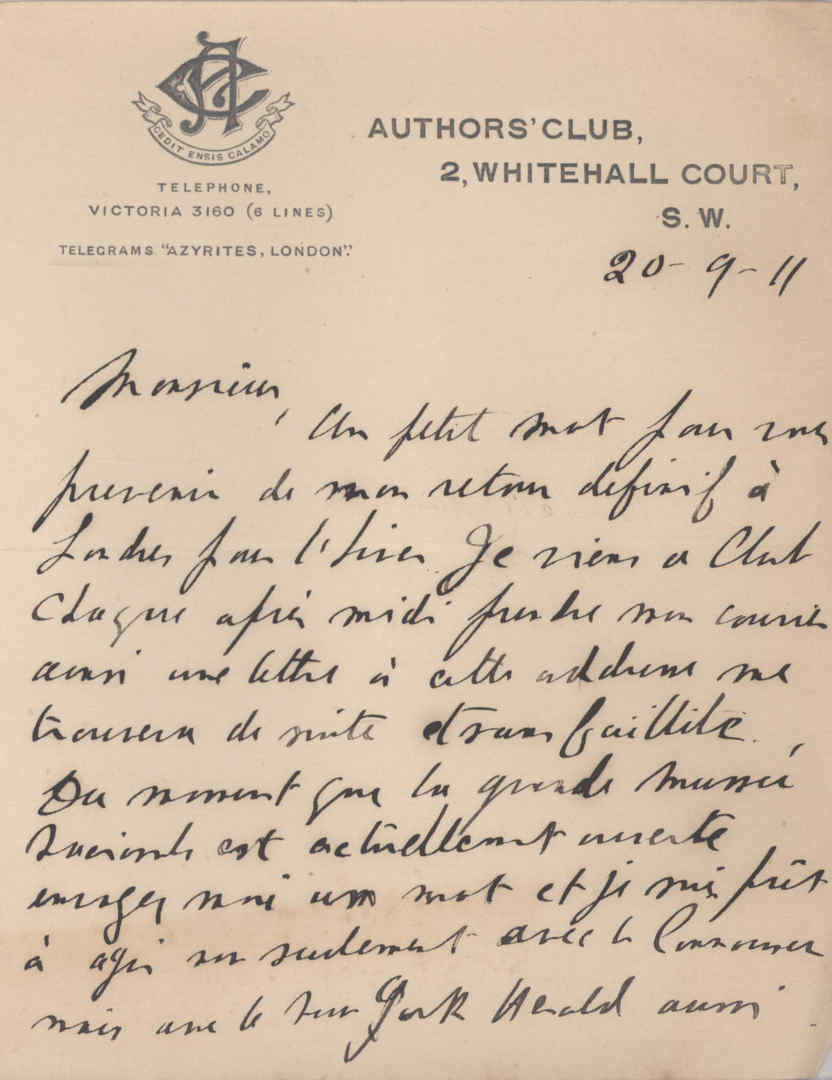 CEDIT ENSIS CALAMO
TELEPHONE,
VICTORIA 3160 (6 LINES)
TELEGRAMS "AZYRITES, LONDON".
AUTHORS' CLUB,
2, WHITEHALL COURT,
S. W.
20-9-11
Monsieur,
Un petit mot pour vous
prevenir de mon retour definif à
Londres pour l'hiver. Je viens a Club
chaque après midi prendre mon courrier
ainsi une lettre à cette addresse me
trouvera de suite et sans failllite.
Du moment que la grande
est actuellement ouverte
envoyez moi un mot et je suis prêt
à agir non seulement avec le Connoisseur
mais avec le New York Herald aussi